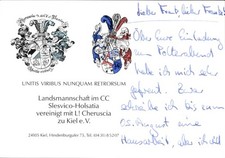 UNITIS VIRIBUS NUNQUAM RETRORSUM
Landsmannschaft im CC
Slesvico-Holsatia
vereinigt mit L! Cheruscia
zu Kiel e.V.
24105 Kiel, Heidenbergstr.
Lieber Frank, liebe
Über Eure Einladung
zum Polterabend
habe ich mich sehr
gefreut.
schreibe ich bis zum
25. August eine
Hausarbeit,